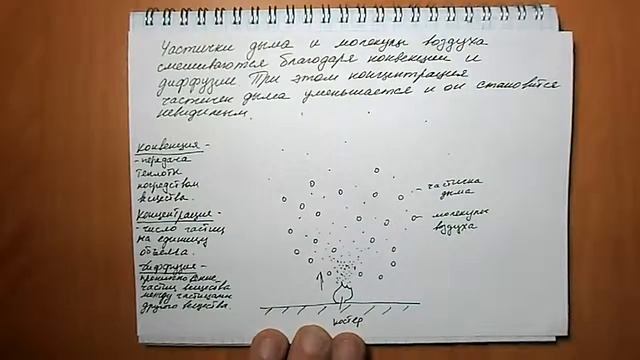 Частички дыма и молекулы воздуха
смешиваются благодаря конвекции и
диффузии. При этом концентрация
частичек дыма уменьшается и он становится
невидимым.
Конвекция -
- передача
теплоты
посредством
вещества.
Концентрация -
- число частиц
на единицу
объёма.
Диффузия -
проникновение
частиц вещества
между частицами
другого вещества.
- частичка
дыма
- молекулы
воздуха
костёр